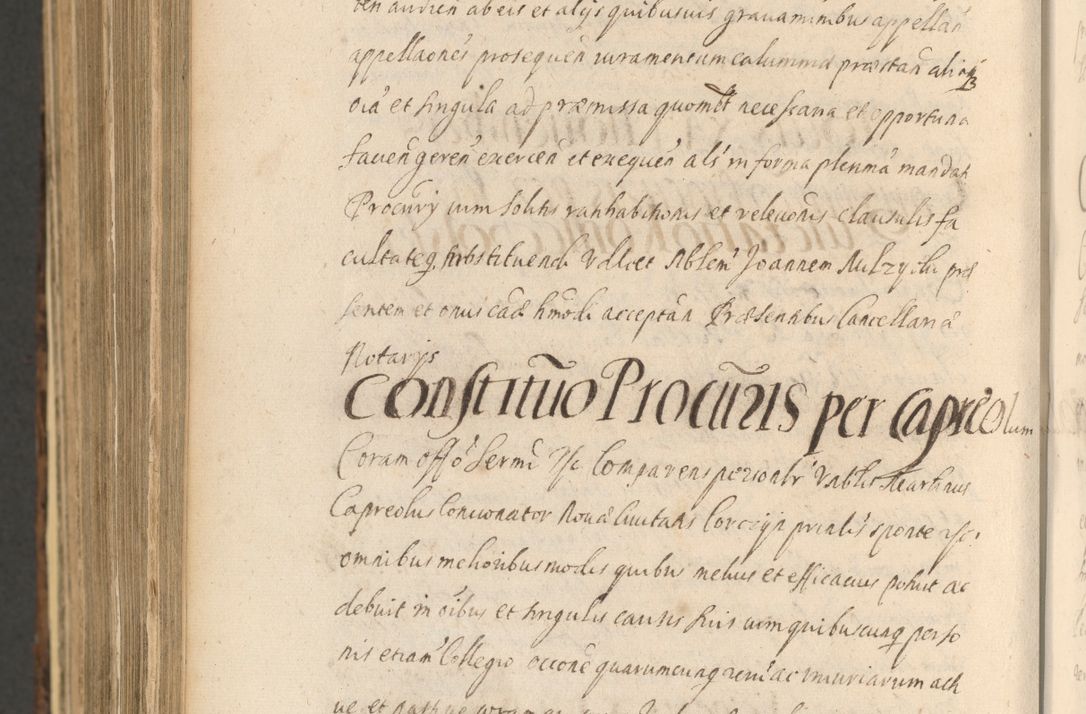 ten audien ab eis et alijs quibusuis grauaminibus appellan
appellaones prosequen iuramentum calumniæ præstan aliaq3
oia et singula ad præmissa quomlt necessaria et opportuna
fauen geren exercen et exequen als in forma plenma mandat
Procurÿ cum solitis ranhabitionis et releuonis clausulis fa
cultateq substituendi Vdlcet Nblem Joannem præ
sentem et onus eade hmodi acceptan Præsentibus Cancellariæ
Notarijs
Constituo Procuris per Capreolum
Coram offo Sermi &c Comparens personlr Vnblis Martinus
Capreolus Concionator Nouæ Ciuitatis Corczijn prinlis sponte &c
omnibus melioribus modis quibus melius et efficacius potuit ac
debuit in oibus et singulis causis suis cum quibuscunq perso
nis etiam Collegio occone quarumcunq rerum ac iniuriarum acti
ue et passiue